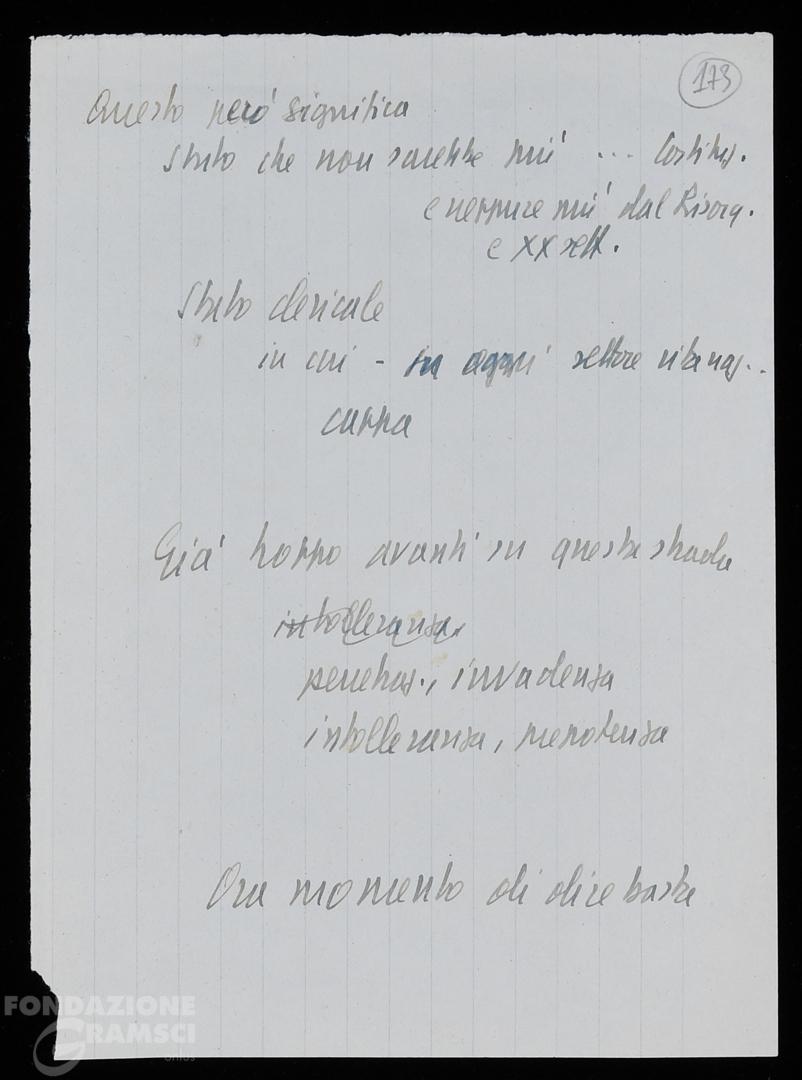 173
Questo però significa
Stato che non sarebbe più ... Costituz.
e neppure più dal Risorg.
e XX sett.
Stato clericale
in cui - in ogni settore
cappa
Già troppo avanti su questa strada
intolleranza,
penetraz., invadenza
intolleranza, prepotenza
Ora momento di dire basta
FONDAZIONE
GRAMSCI
onlus